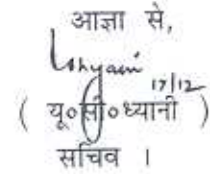 आज्ञा से,
17/12
( यू०सी०ध्यानी )
सचिव ।